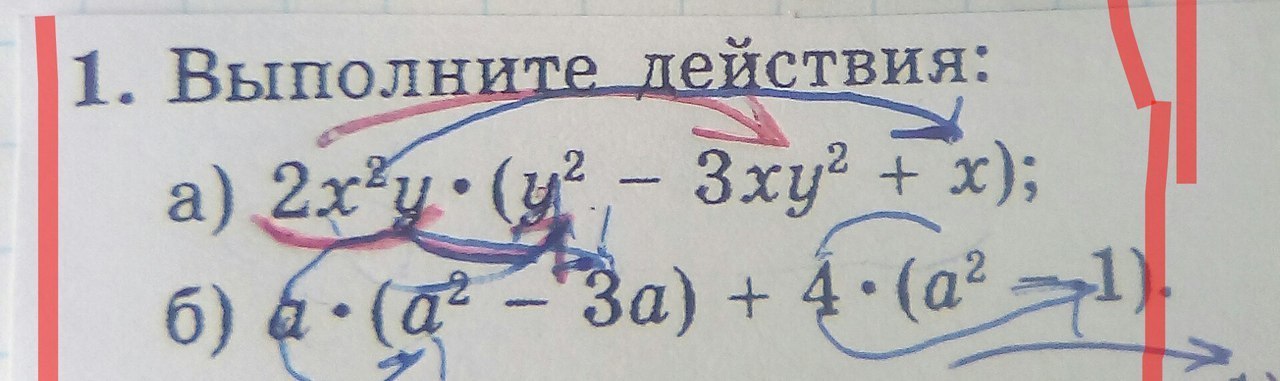 1. Выполните действия:
а) 2x²y · (y² − 3xy² + x);
б) a · (a² − 3a) + 4 · (a² − 1).